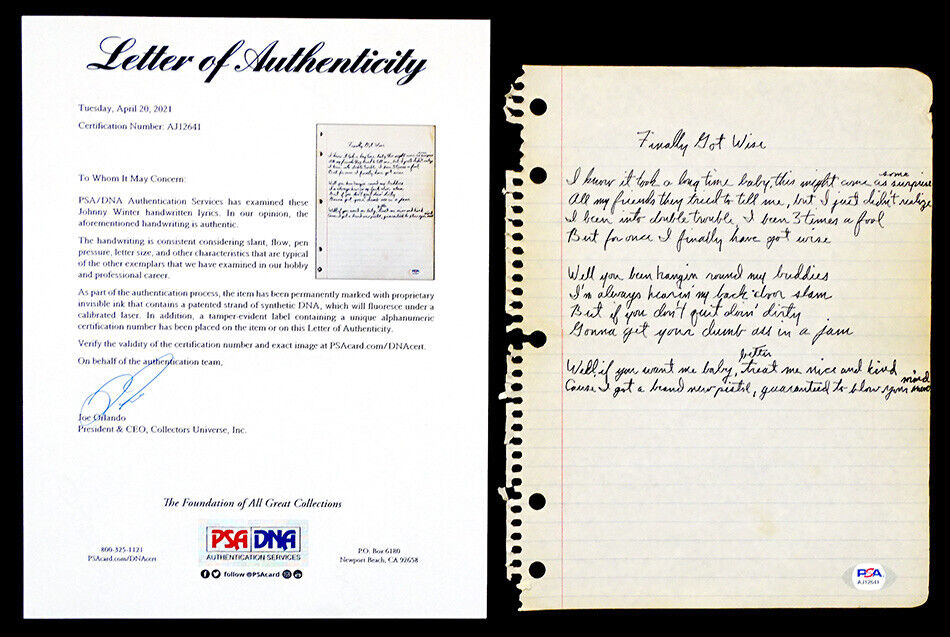 Letter of Authenticity
Tuesday, April 20, 2021
Certification Number: AJ12641
To Whom It May Concern:
PSA/DNA Authentication Services has examined these
Johnny Winter handwritten lyrics. In our opinion, the
aforementioned handwriting is authentic.
The handwriting is consistent considering slant, flow, pen
pressure, letter size, and other characteristics that are typical
of the other exemplars that we have examined in our hobby
and professional career.
As part of the authentication process, the item has been permanently marked with proprietary
invisible ink that contains a patented strand of synthetic DNA, which will fluoresce under a
calibrated laser. In addition, a tamper-evident label containing a unique alphanumeric
certification number has been placed on the item or on this Letter of Authenticity.
Verify the validity of the certification number and exact image at PSAcard.com/DNAcert.
On behalf of the authentication team,
Joe Orlando
President & CEO, Collectors Universe, Inc.
The Foundation of All Great Collections
800-325-1121
PSAcard.com/DNAcert
PSA DNA
AUTHENTICATION SERVICES
follow @PSAcard
P.O. Box 6180
Newport Beach, CA 92658
Finally Got Wise
some
I know it took a long time baby, this might come as surprise
All my friends they tried to tell me, but I just didn't realize
I been into double trouble I been 3 times a fool
But for once I finally have got wise
Well you been hangin round my buddies
I'm always hearin my back door slam
But if you don't quit doin' dirty
Gonna get your dumb ass in a jam
better
Well, if you want me baby, treat me nice and kind
mind
Cause I got a brand new pistol, guaranteed to blow your
PSA
AJ12641